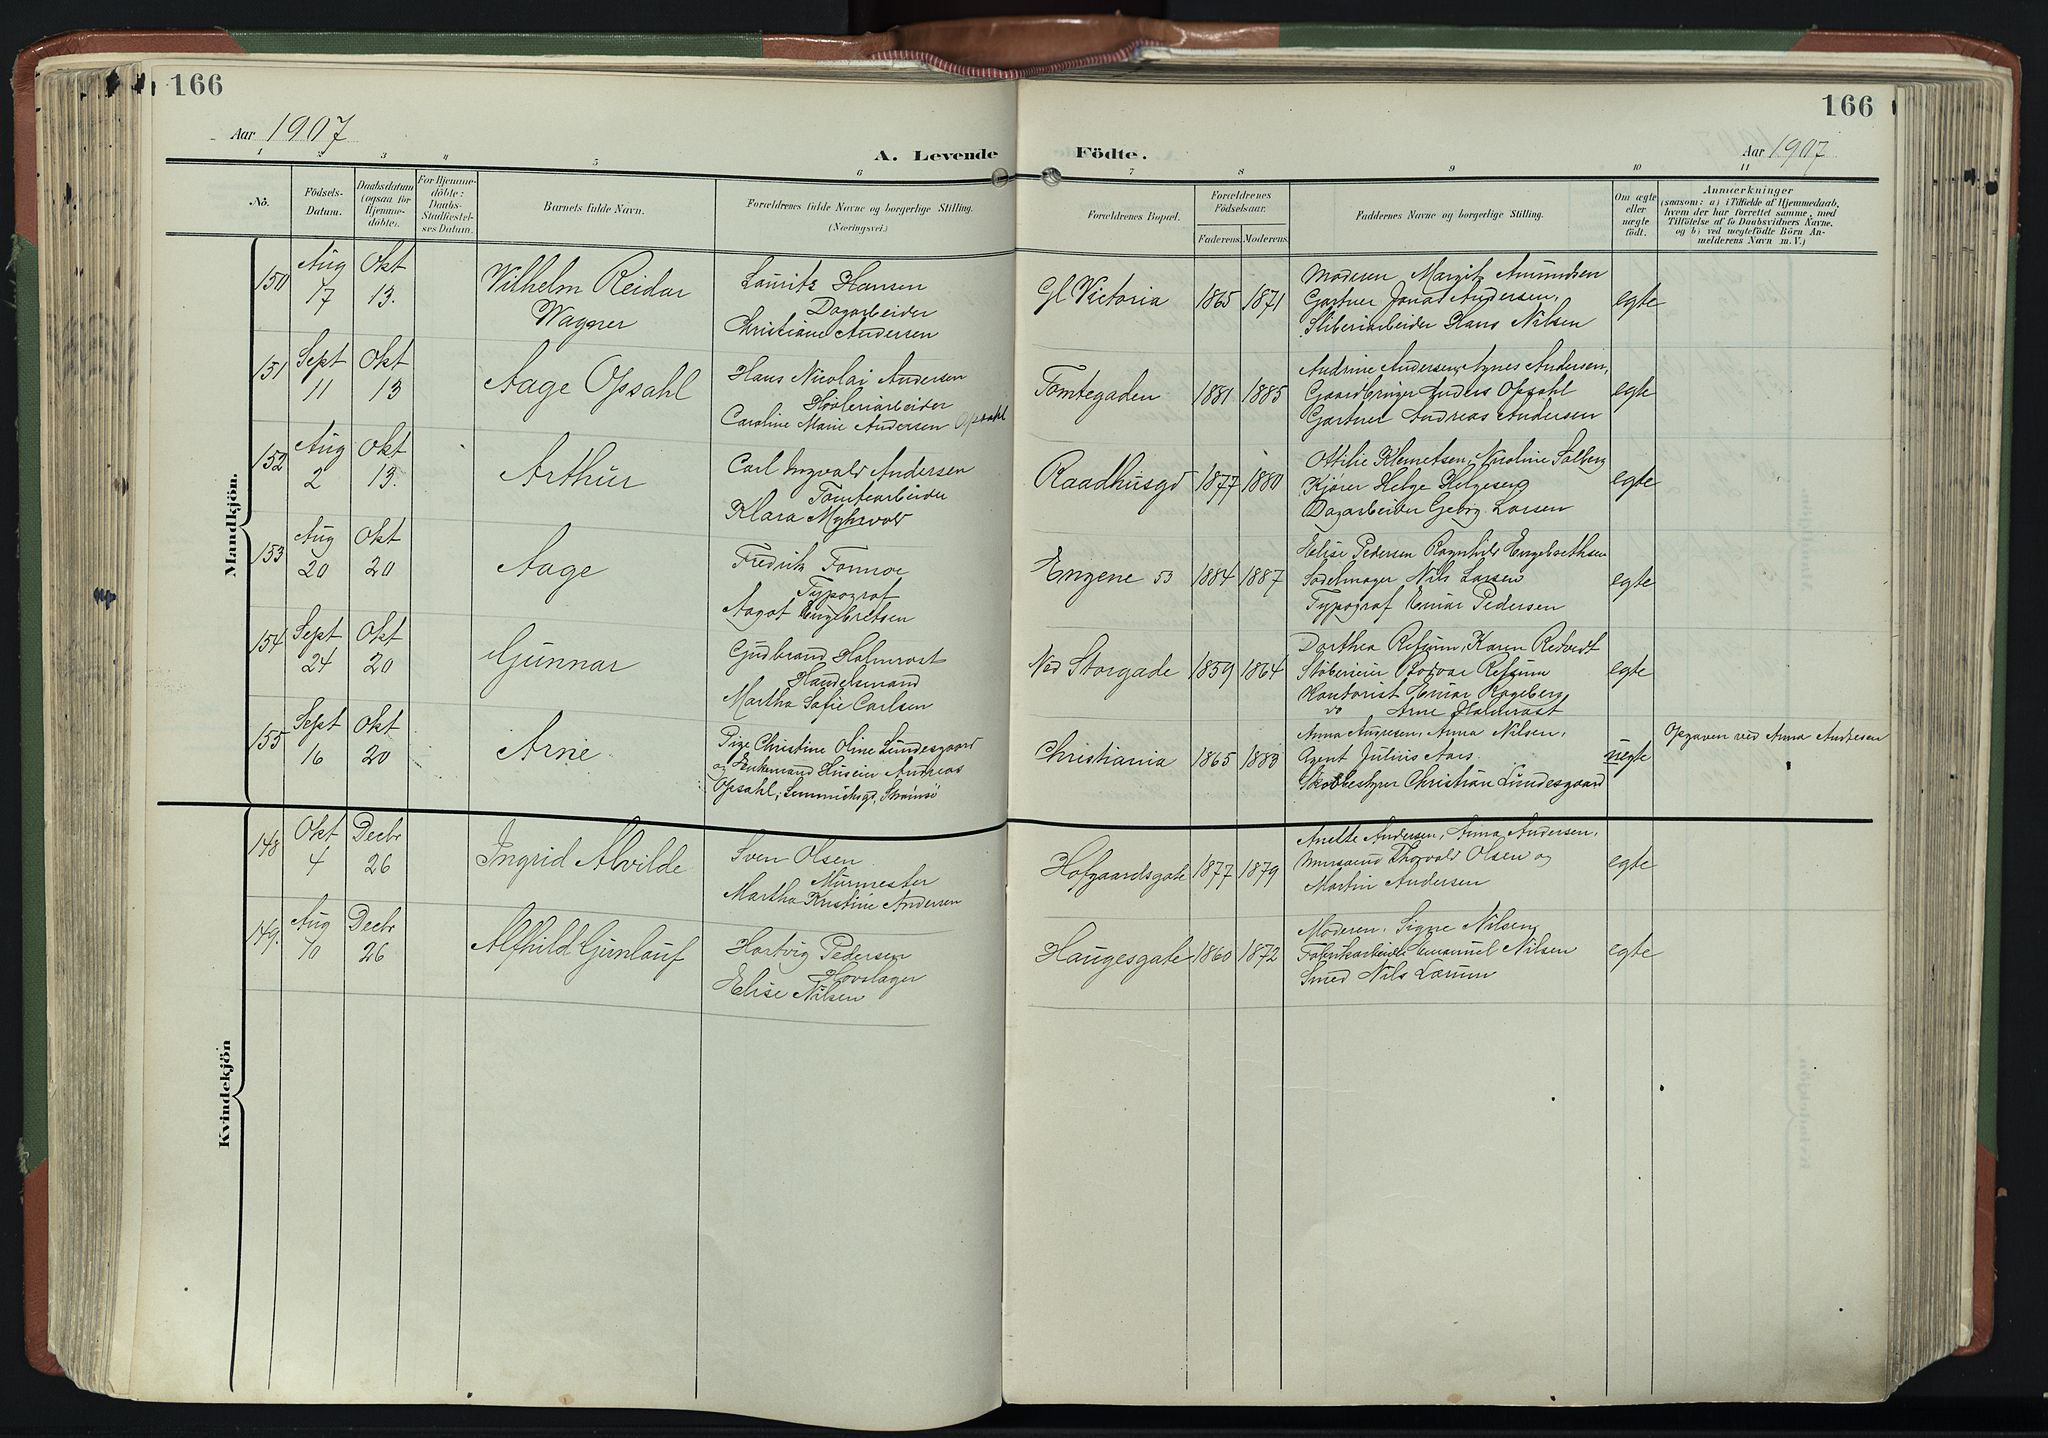 166
166
Aar 1907
A. Levende Födte.
Aar 1907
1 2 3 4 5 6 7 8 9 10 11
No.
Födsels-Datum.
Daabsdatum (ogsaa for Hjemme-döbte).
For Hjemme-döbte: Daabs-Stadfæstel-ses Datum.
Barnets fulde Navn.
Forældrenes fulde Navne og borgerlige Stilling. (Næringsvei.)
Forældrenes Bopæl.
Forældrenes Födselsaar.
Faderens. Moderens.
Faddernes Navne og borgerlige Stilling.
Om ægte eller uægte födt.
Anmærkninger
(saasom: a) i Tilfælde af Hjemmedaab, hvem der har forrettet samme, med Tilföielse af to Daabsvidners Navne, og b) ved uægtefödte Börn An-melderens Navn m. V.)
Mandkjön.
150 Aug 17 Okt 13.
Wilhelm Reidar
Wagner
Lauritz Hansen
Dagarbeider
Christiane Andersen
Gl Victoria 1865 1871
Moderen Margit Amundsen
Gartner Jonas Andersen,
Sliberiarbeider Hans Nilsen
egte
151 Sept 11 Okt 13
Aage Opsahl
Hans Nicolai Andersen
Caroline Marie Andersen Opsahl
Tomtegaden 1881 1885
Andrine Andersen, Agnes Andersen,
Gaardbruger Anders Opsahl
Gartner Andreas Andersen
egte
152 Aug 2 Okt 13.
Arthur
Carl Ingvald Andersen
Tomtearbeider
Klara Myhrvold
Raadhusgd 1877 1880
Ottilie Klemetsen, Nicoline Solberg
Kjører Helge Helgesen
Dagarbeider Georg Larsen
egte
153 Aug 20 Okt 20
Aage
Fredrik Tonnoe
Typograf
Aagot Engebretsen
Engene 53 1884 1887
Elise Pedersen Ragnhild Engebrethsen
Sadelmager Nils Larsen
Typograf Einar Pedersen
egte
154 Sept 24 Okt 20
Gunnar
Gudbrand Holmrast
Handelsmand
Martha Sofie Carlsen
Ned Storgade 1859 1864
Dorthea Refsum, Karen Redvedt
Støberieier Bodvar Refsum
Kontorist Einar Hageberg
do Arne Holmrast
egte
155 Sept 16 Okt 20
Arne
Pige Christine Oline Lundesgaard
og Enkemand Husein Andreas
Opsahl, Lemmichsgd, Strømsø
Christiania 1865 1883
Anna Andresen, Anna Nilsen,
Agent Julius Aars.
Skobestyrer Christian Lundesgaard
uegte
Opgaven ved Anna Andresen
Kvindekjön
148 Okt 4 Decbr 26
Ingrid Alvilde
Sven Olsen
Murmester
Martha Kristine Andersen
Hofgaardsgate 1877 1879
Anette Andersen, Anna Andersen,
Mursvend Thorvald Olsen og
Martin Andersen
egte
149. Aug 10 Decbr 26
Alfhild Gunlauf
Hartvig Pedersen
Hovslager
Elise Nilsen
Haugesgate 1860 1872
Moderen, Signe Nilsen,
Fabrikarbeider Emanuel Nilsen
Smed Nils Larum
egte